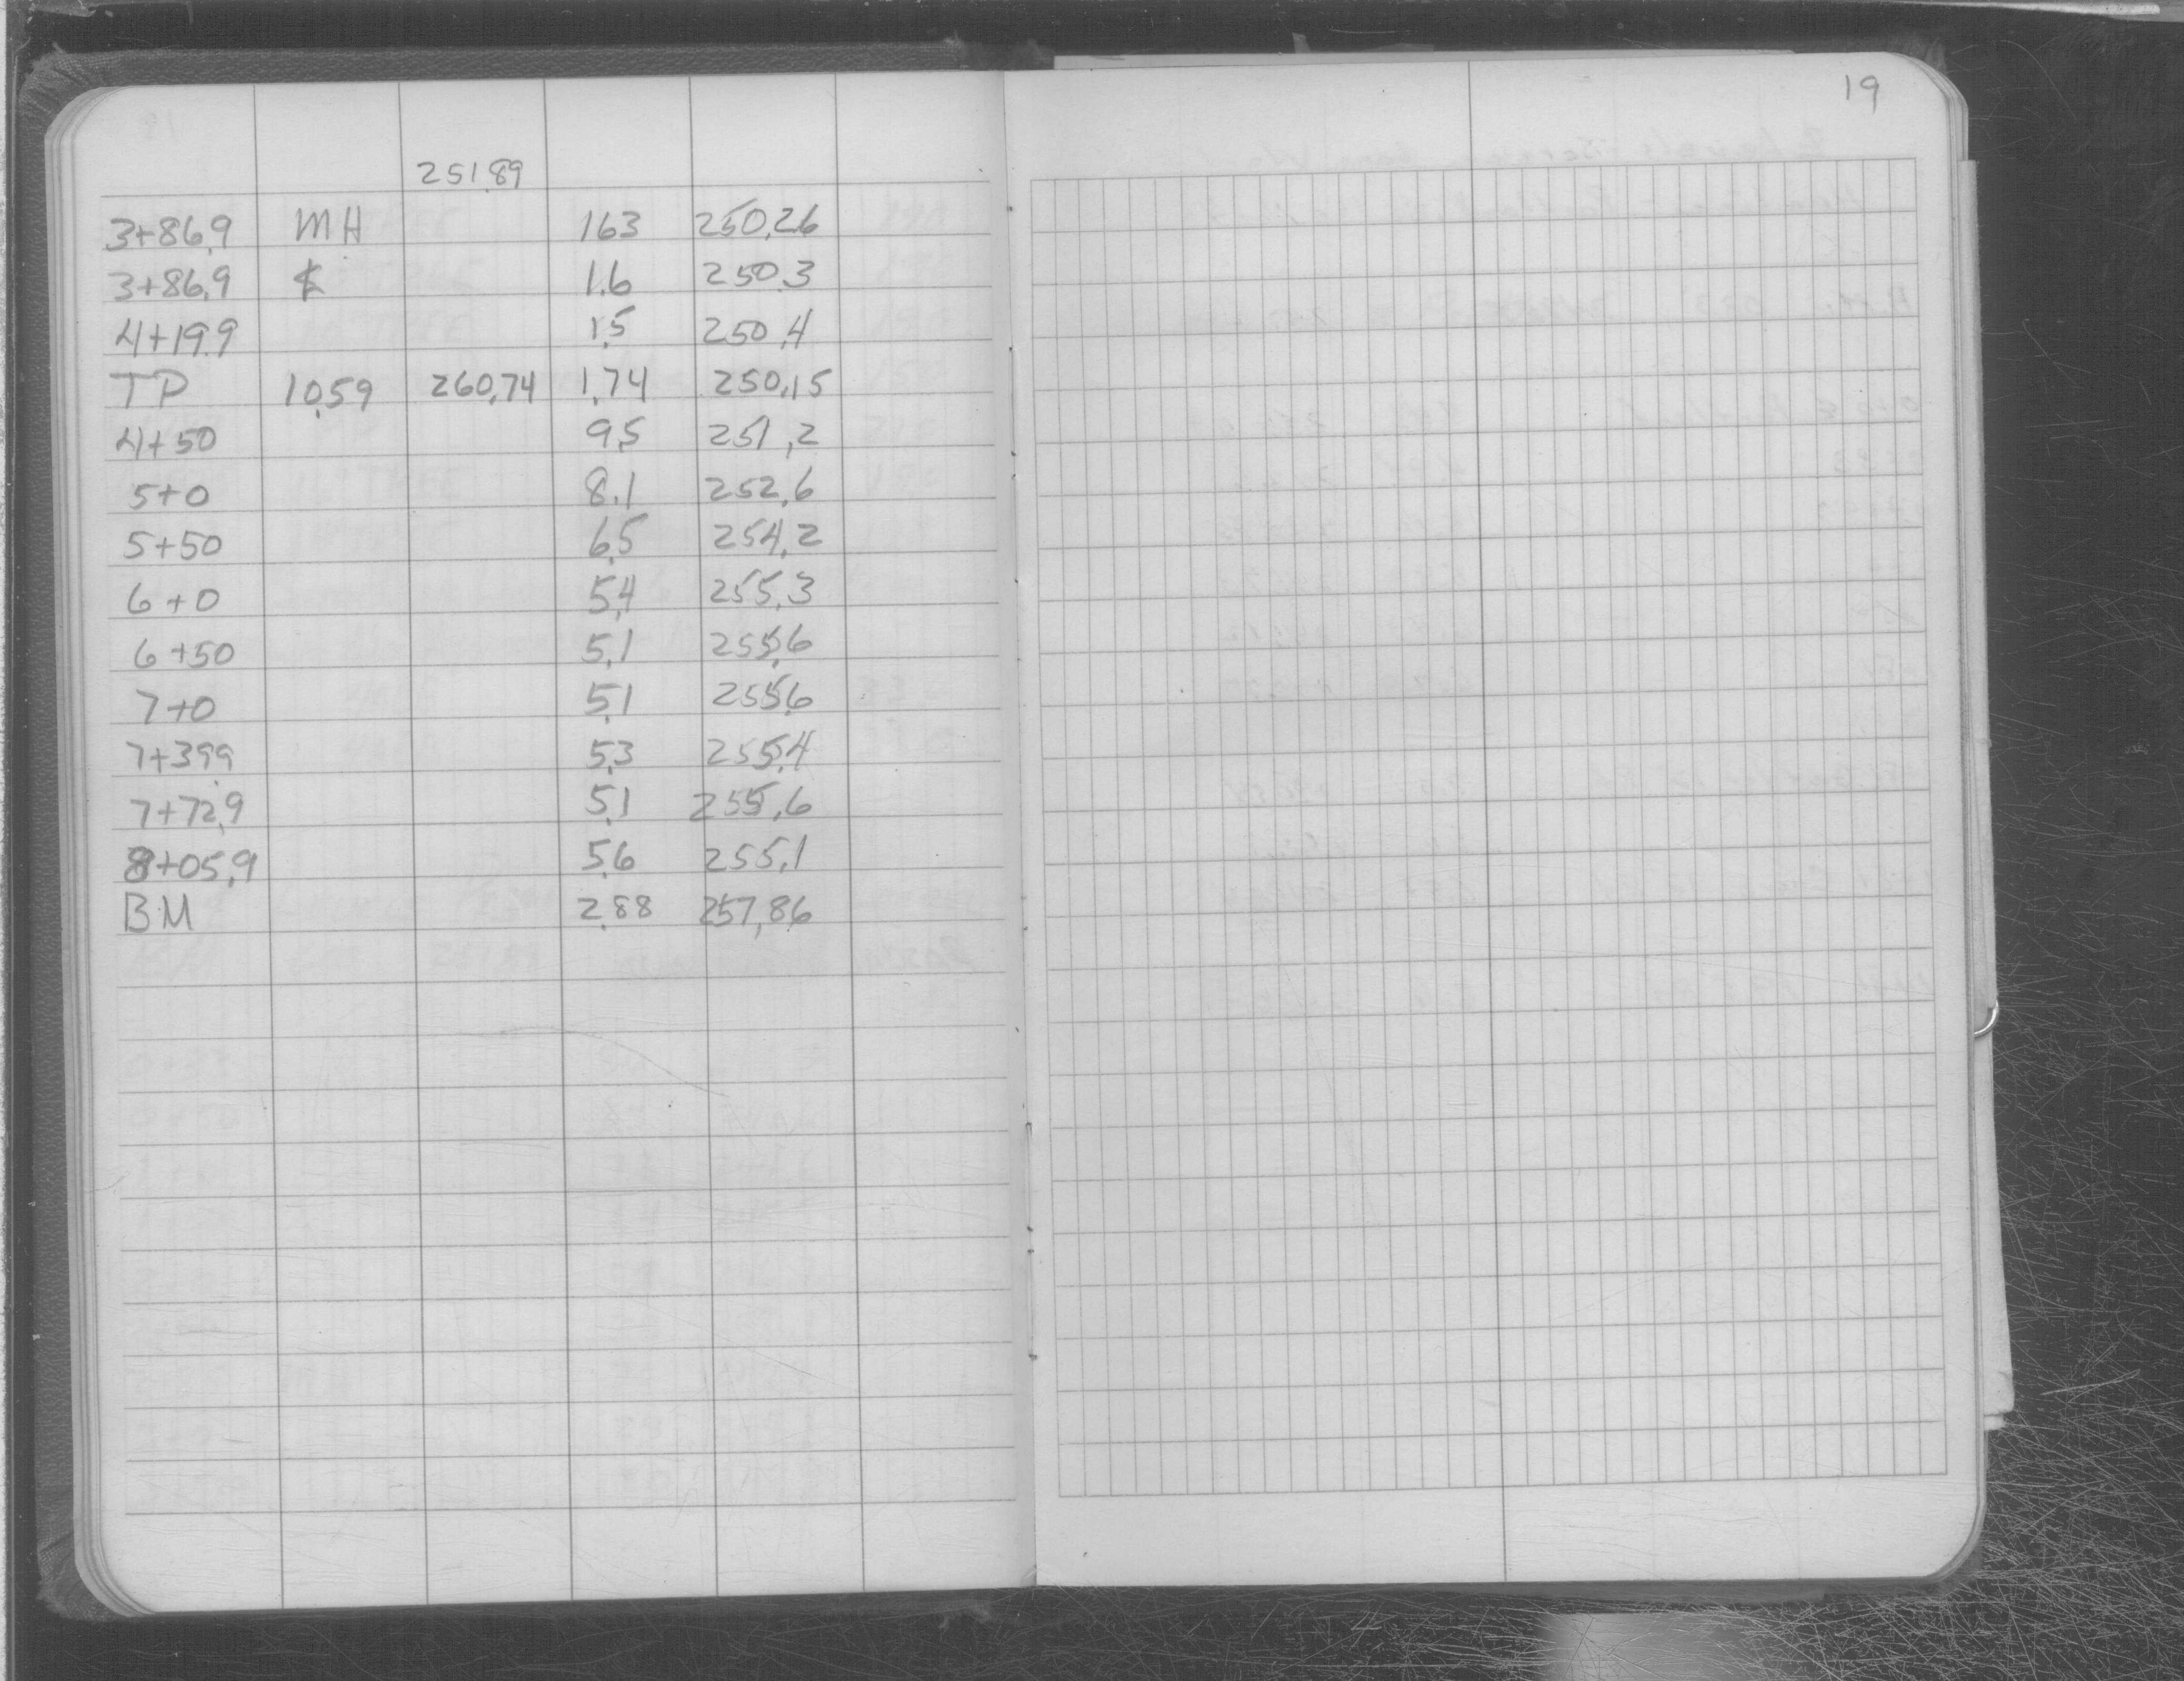 19
251.89
3+86.9 MH 1.63 250.26
3+86.9 ℄ 1.6 250.3
4+19.9 1.5 250.4
TP 10.59 260.74 1.74 250.15
4+50 9.5 251.2
5+0 8.1 252.6
5+50 6.5 254.2
6+0 5.4 255.3
6+50 5.1 255.6
7+0 5.1 255.6
7+39.9 5.3 255.4
7+72.9 5.1 255.6
8+05.9 5.6 255.1
BM 2.88 257.86